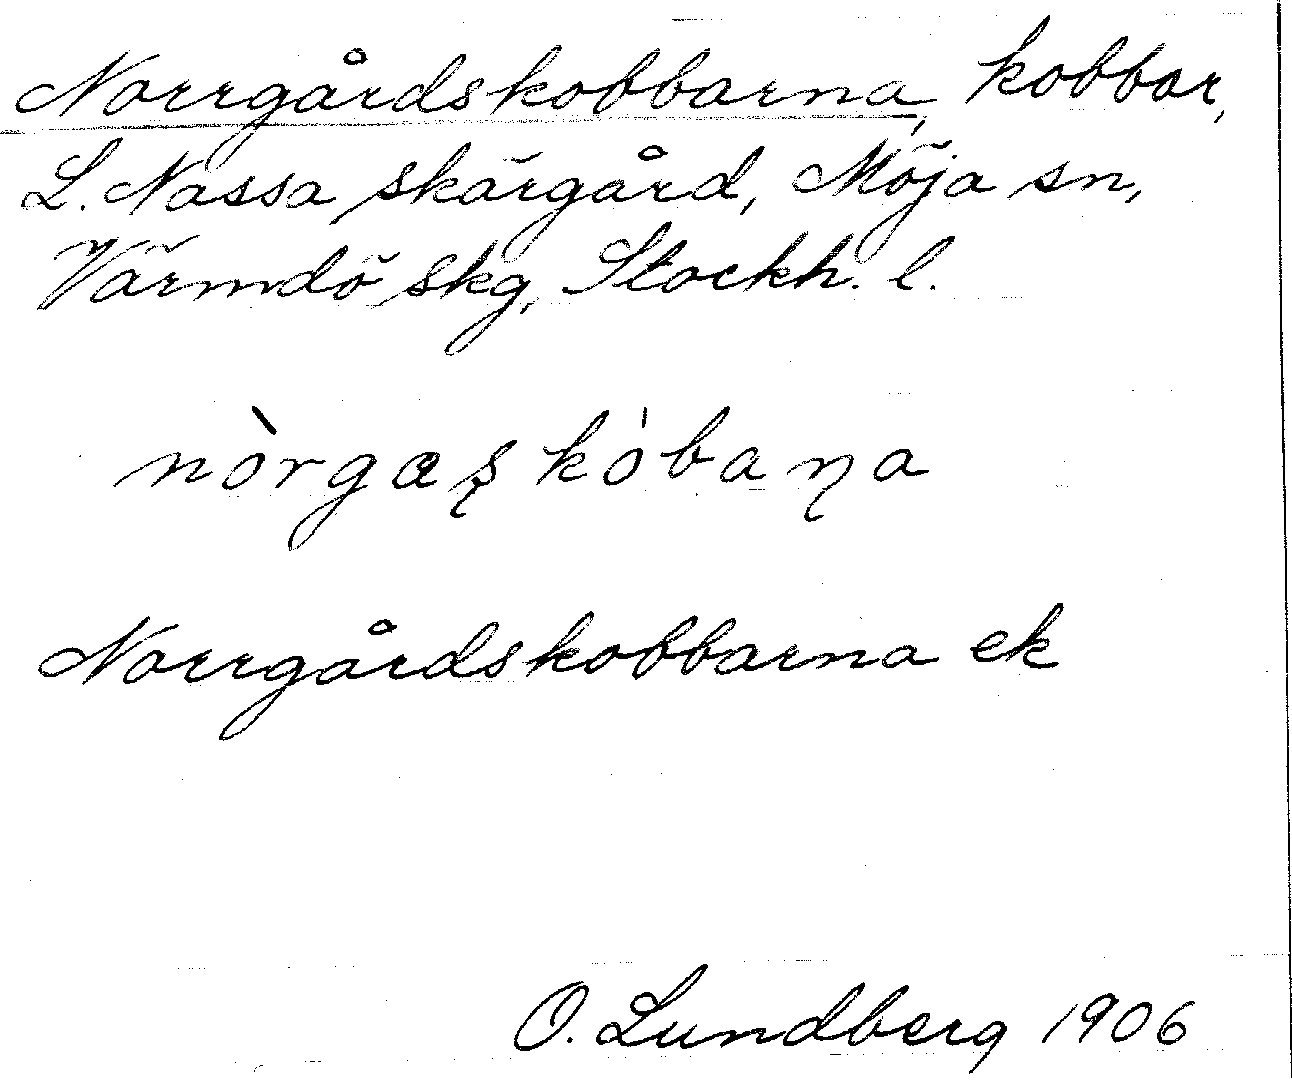 Norrgårdskobbarna, kobbar,
L. Nassa skärgård, Möja sn,
Värmdö skg, Stockh. l.
nòrgaʂkób​aɳa
Norrgårdskobbarna ek
O. Lundberg 1906